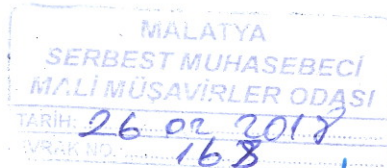 MALATYA
SERBEST MUHASEBECİ
MALİ MÜŞAVİRLER ODASI
TARİH: 26 02 2018
EVRAK NO. 168